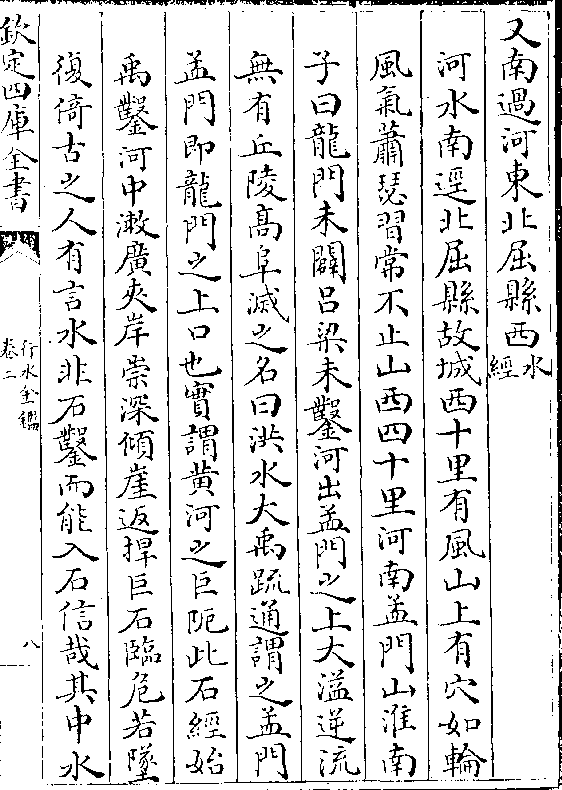 又南過河東北屈縣西水經
河水南逕北屈縣故城西十里有風山上有穴如輪
風氣蕭瑟習常不止山西四十里河南孟門山淮南
子曰龍門未闢吕梁未鑿河出孟門之上大溢逆流
無有丘陵髙阜滅之名曰洪水大禹疏通謂之孟門
孟門即龍門之上口也實謂黄河之巨阨此石經始
禹鑿河中漱廣夾岸崇深傾崖返捍巨石臨危若墜
復倚古之人有言水非石鑿而能入石信哉其中水
欽定四庫全書
行水金鑑
卷二
八